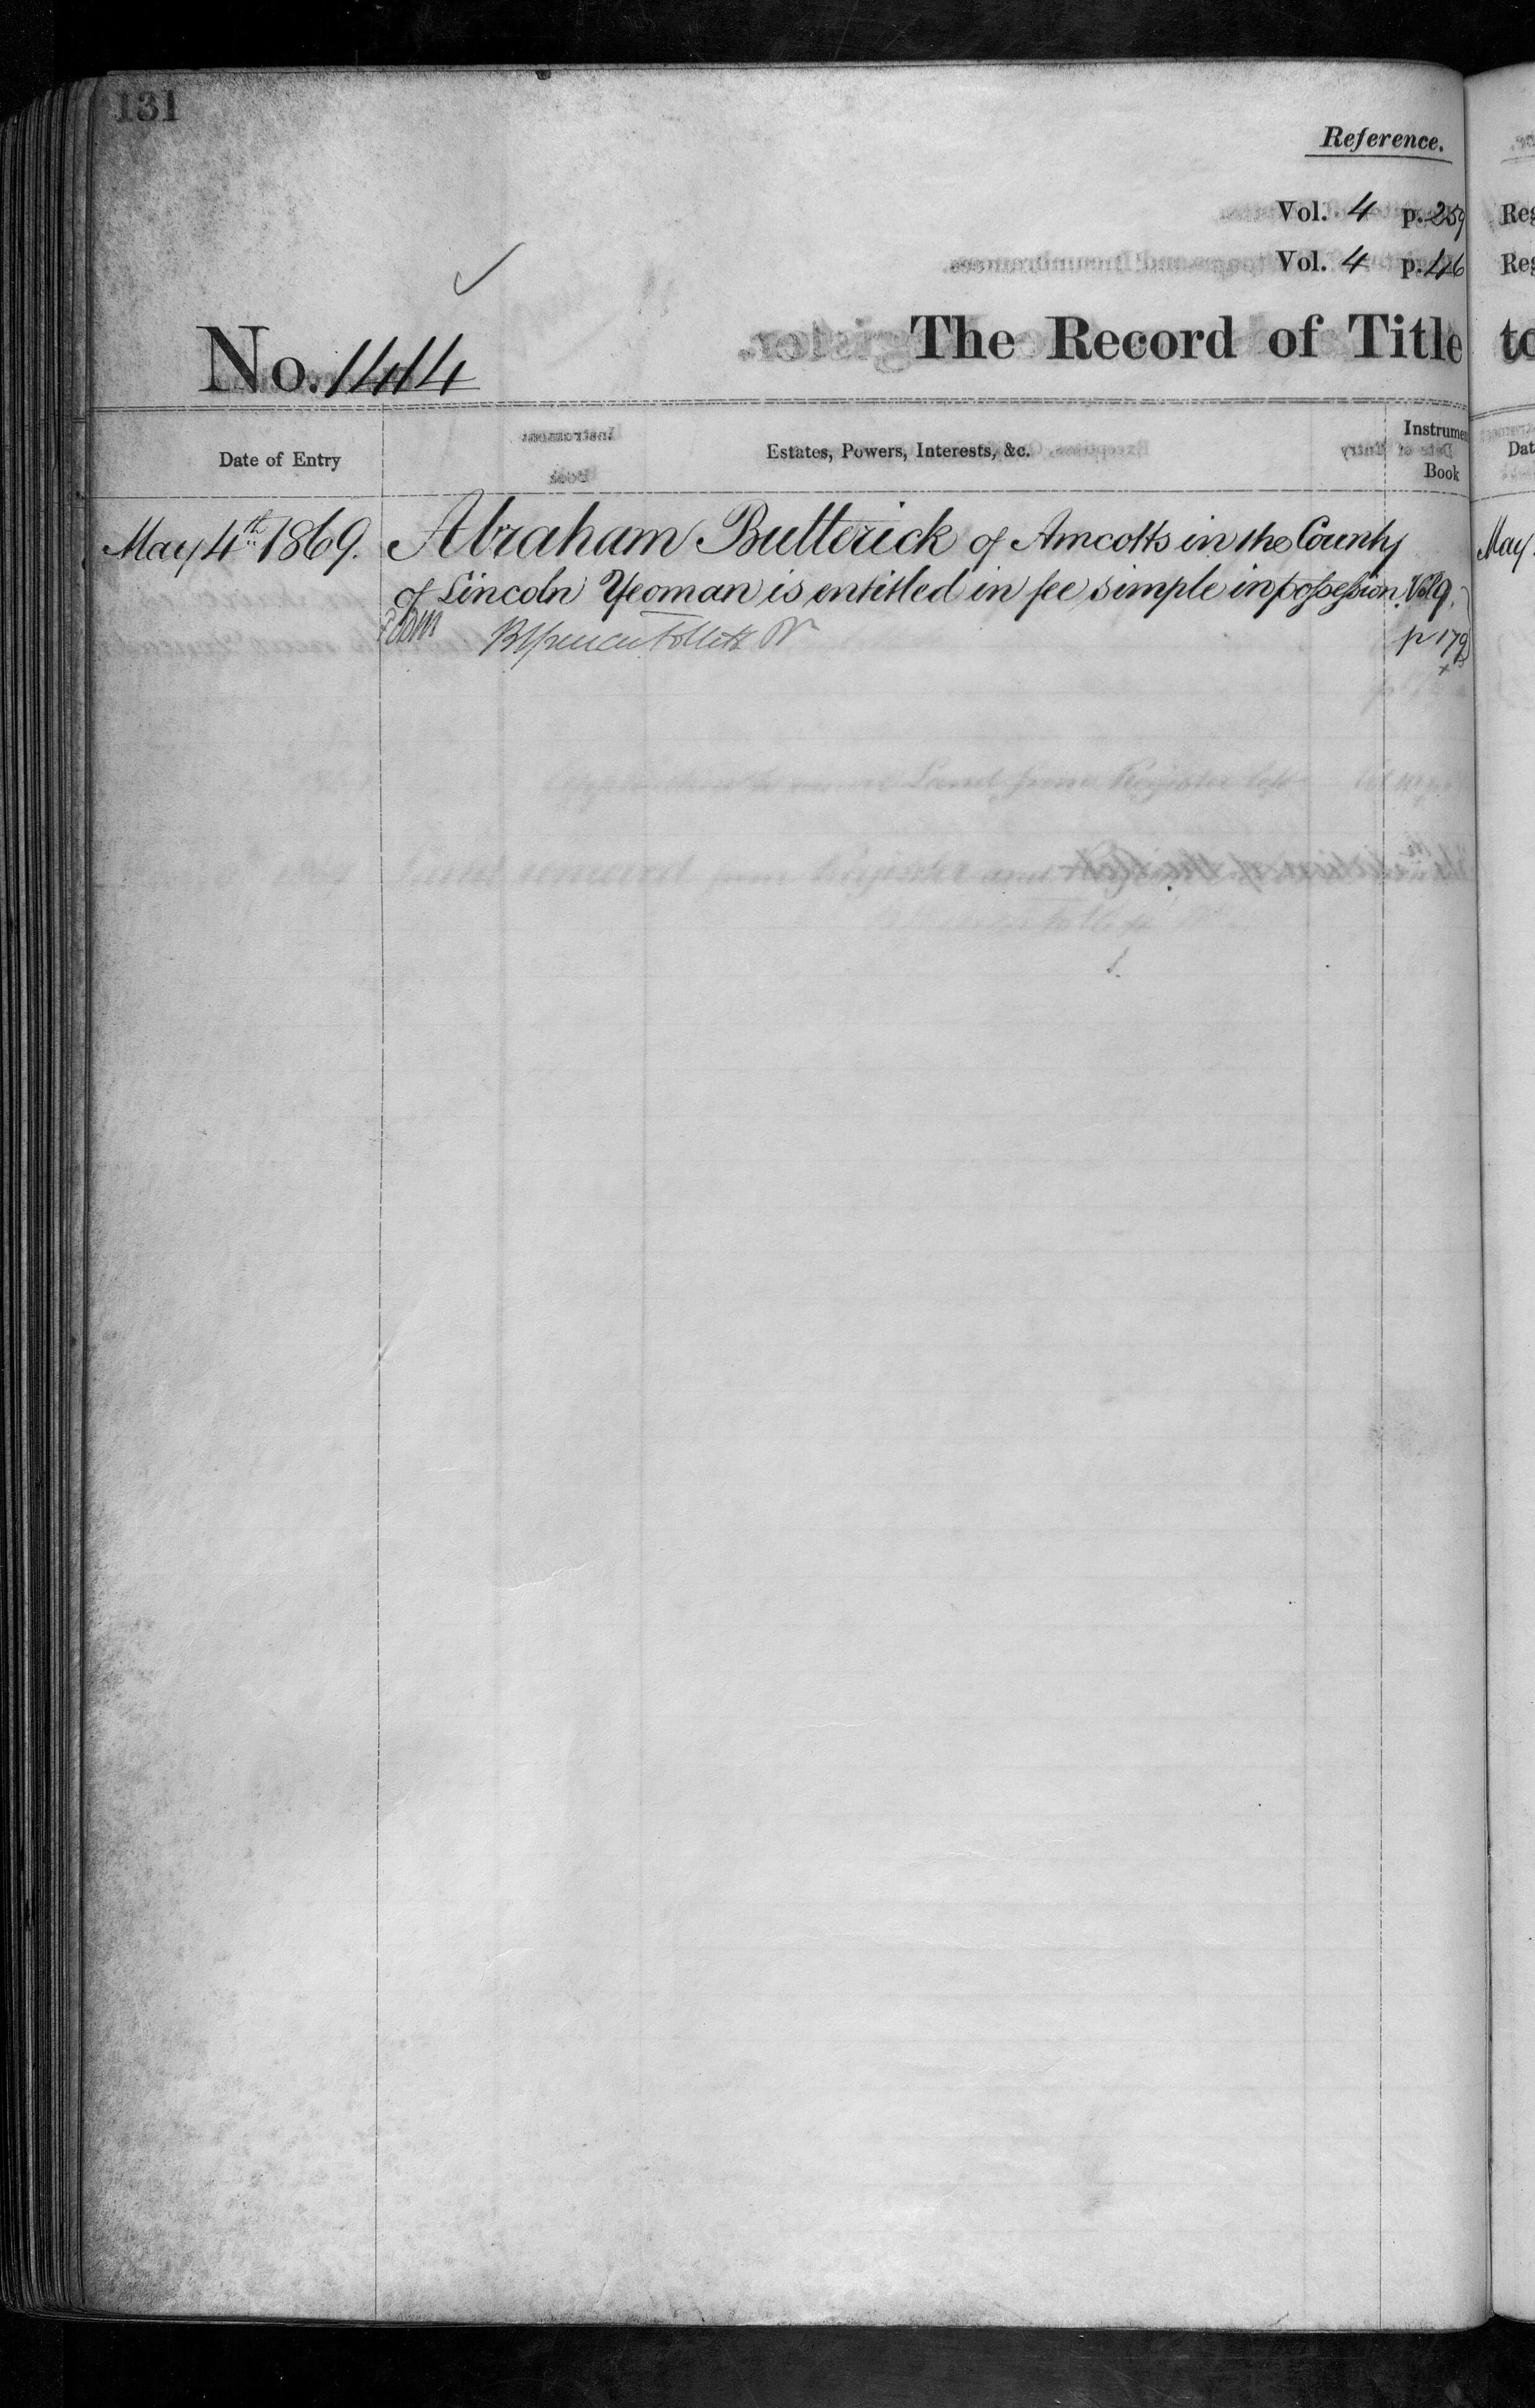 131
Reference.
Vol. 4 p. 259
Vol. 4 p. 46
No. 1414
The Record of Title
Date of Entry
Estates, Powers, Interests, &c.
Instrumen
Book
May 4th 1869.
Abraham Butterick of Amcotts in the County
of Lincoln Yeoman is entitled in fee simple in possession. Vol 9.
p 179
Reg
Reg
to
Dat
May